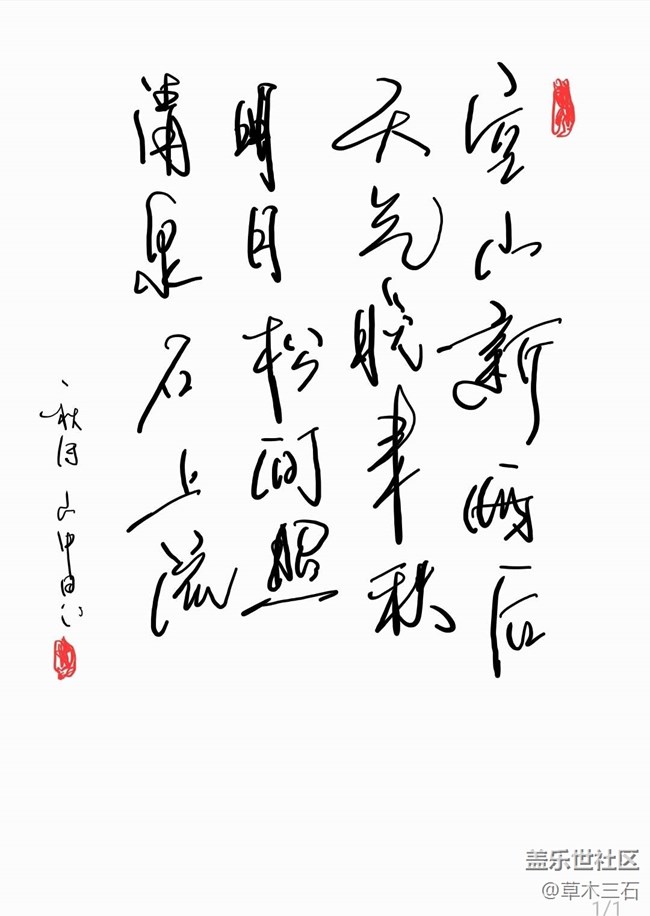 空山新雨后
天气晚来秋
明月松间照
清泉石上流
盖乐世社区
@草木三石
1/1